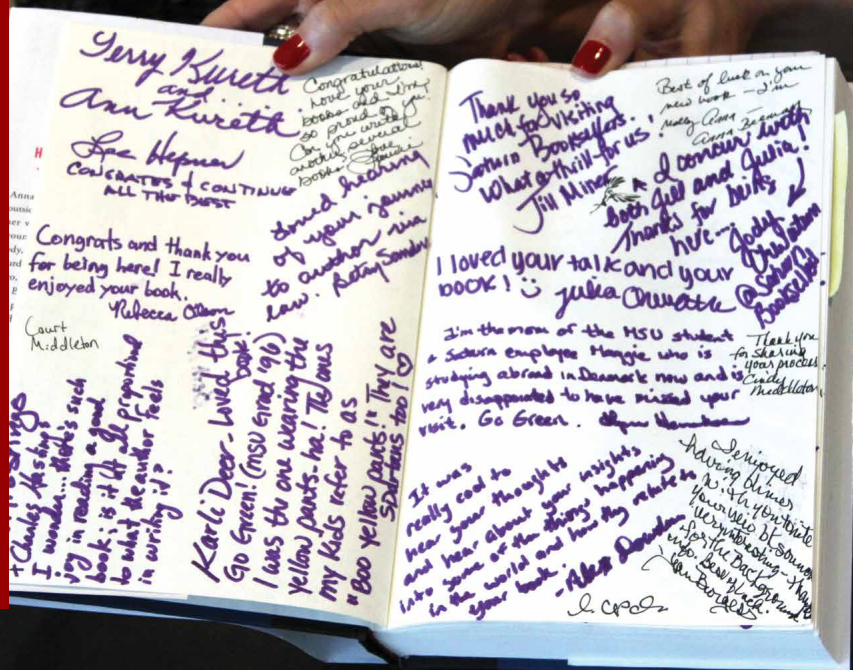 Terry Kureth
and
Ann Kureth
Lee Hepner
CONGRATS & CONTINUED
ALL THE BEST
Congratulations!
Love your
books and I'm
so proud of you.
Can you write
another several
books
Loved hearing
of your journey
to author via
law. Betsy
Congrats and thank you
for being here! I really
enjoyed your book.
Rebecca
Court
Middleton
+ Charles Hastings
I wonder... there's such
joy in reading a good
book; is it at all proportional
to what the author feels
in writing it?
Karli Deer - Loved this
book!
Go Green! (MSU Grad '96)
I was the one wearing the
yellow pants - ha! The ones
my kids refer to as
"Boo yellow pants!" They are
Spartans too!
Thank you so
much for visiting
Saturn Booksellers.
What a thrill for us!
Jill Miner
Best of luck on your
new work - I'm
really Anna -
Anna
I concur with
both Jill and Julia!
Thanks for being
here...
Jody
@Saturn
Booksellers
I loved your talk and your
book! Julia
I'm the mom of the MSU student
& Saturn employee Maggie who is
studying abroad in Denmark now and is
very disappointed to have missed your
visit. Go Green.
Thank you
for sharing
your process
Cindy
Middleton
It was
really cool to
hear your thoughts
and hear about your insights
into some of the things happening
in the world and how they relate to
your book.
I enjoyed
having dinner
with you
very interesting - Thanks
for the Background
info. Best of luck.
Jean